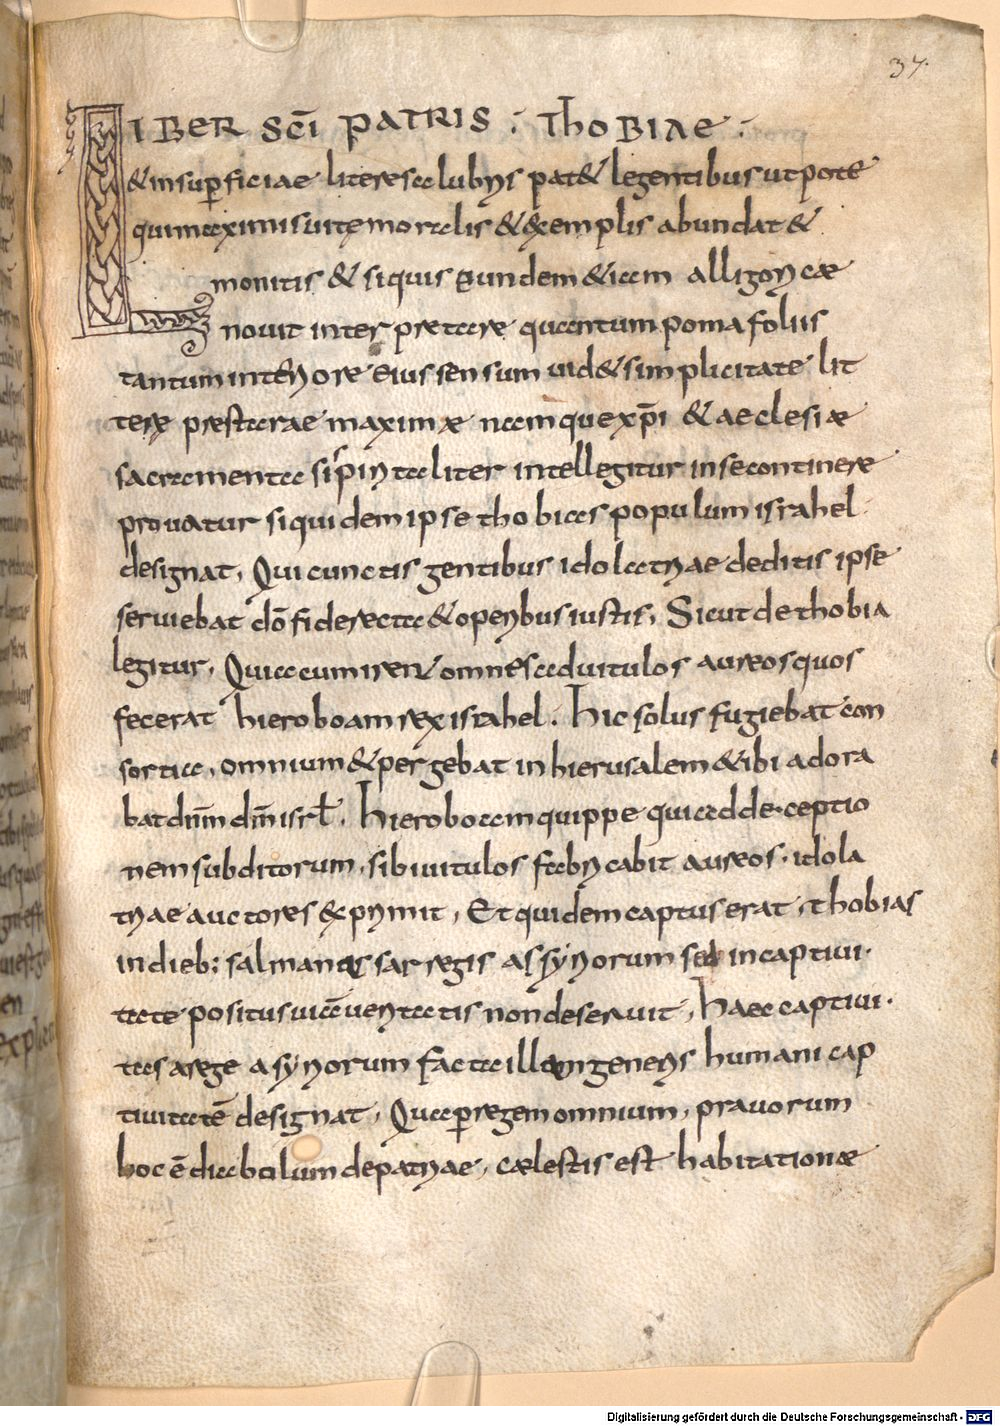 37.
LIBER SCĪ PATRIS : ThOBIAE :
& insup̄ficiae litere salubris pat& legentibus utpote
qui maximis uitę mortalis & exemplis abundat &
monitis & siquis eundem &iam alligoricæ
nouit interpretare quantum poma foliis
tantum interiore eius sensum uid& simplicitate lit
terę præstare maximæ namque xp̄i & aeclesiæ
sacramenta sip̄ritaliter intellegitur in se continere
prouatur siquidem ipse thobias populum israhel
designat, Qui cunctis gentibus idolatriae deditis ipse
seruiebat dō fide recta & operibus iustis, Sicut de thobia
legitur, Quia cum irent omnes ad uitulos aureos quos
fecerat hieroboam rex israhel. hic solus fugiebat con
sortia, omnium & pergebat in hierusalem & ibi adora
bat dnm̄ dm̄ isrł. hieroboam quippe qui ad deceptio
nem subditorum, sibi uitulos fabricabit aureos. idola
triae auctores exprimit, Et quidem captus erat, thobias
in dieb: salmanassar regis assyriorum sed in captiui.
tate positus uiā ueritatis non deseruit, haec captiui.
tas a rege asyriorum facta illam generis humani cap
tiuitatē designat, Quae p̄ regem omnium, prauorum
hoc ē diabolum de patriae, cælestis est habitationæ
Digitalisierung gefördert durch die Deutsche Forschungsgemeinschaft - DFG